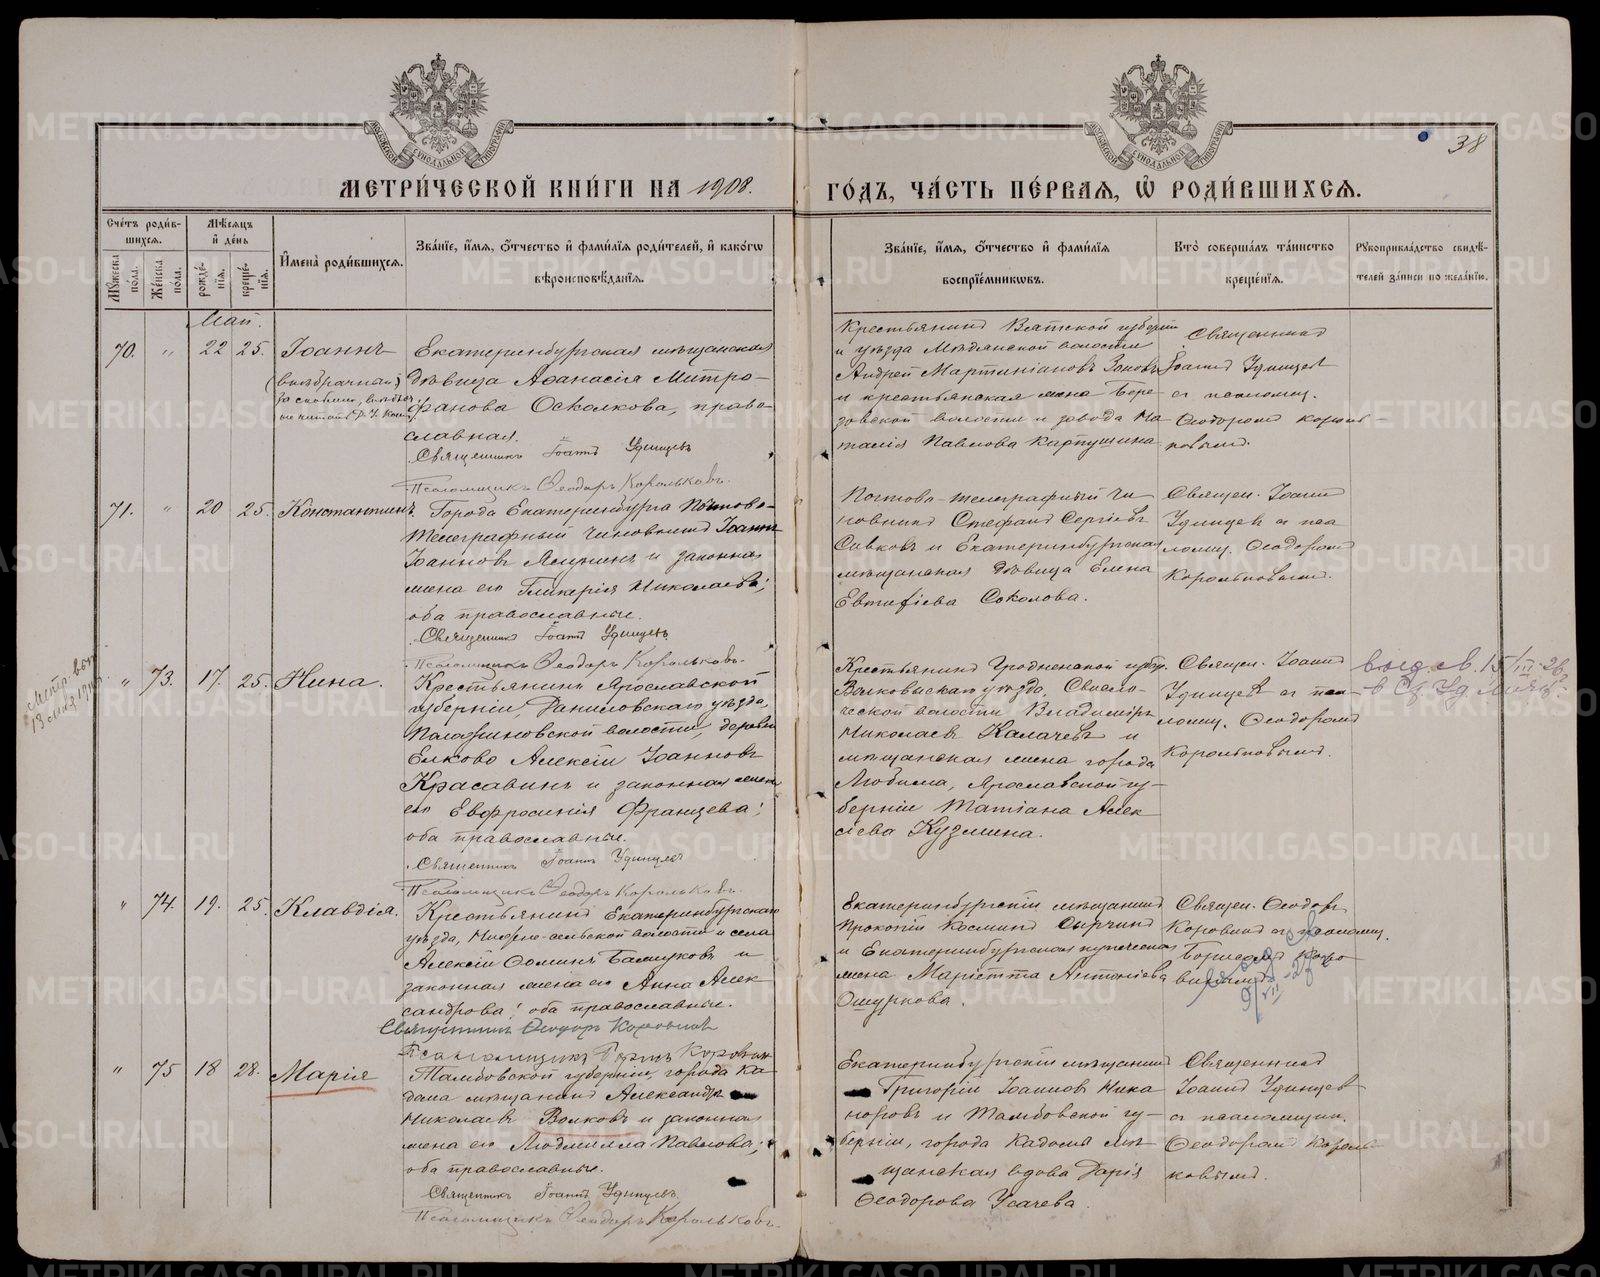 38
МЕТРИ́ЧЕСКОЙ КНИ́ГИ НА 1908.
ГО́ДЪ, ЧА́СТЬ ПЕ́РВАЯ, Ѽ РОДИ́ВШИХСЯ.
Счетъ роди́в-
шихся.
Мꙋжеска пола.
Же́нска пола.
Мѣсяцъ
и҆ де́нь
рожде́-
нїя.
креще́-
нїя.
И҆мена̀ роди́вшихся.
Зва́нїе, и҆́мя, ѻ҆́тчество и҆ фами́лїя роди́телей, и҆ како́гѡ
вѣроисповѣ́данїя.
Зва́нїе, и҆́мя, ѻ҆́тчество и҆ фами́лїя
воспрїе́мникѡвъ.
Кто̀ соверша́лъ та́инство
креще́нїя.
Рꙋкоприкла́дство свидѣ́-
телей за́писи по жела́нїю.
Май.
70. " 22 25. Іоаннъ
(внѣбрачный)
Екатеринбургская мѣщанская
дѣвица Аѳанасія Митро-
фанова Осколкова, право-
славная.
Священникъ Іоаннъ Удинцевъ
Псаломщикъ Ѳеодоръ Корольковъ.
Крестьянинъ Вятской губерніи
и уѣзда Мѣдянской волости
Андрей Мартиніановъ Зоновъ
и крестьянская жена Бере-
зовской волости и завода На-
талія Павлова Карпушина
Священникъ
Іоаннъ Удинцевъ
съ псаломщ.
Ѳеодоромъ Король-
ковымъ.
71. " 20 25. Константинъ.
Города Екатеринбурга Почтово-
Телеграфный чиновникъ Іоаннъ
Іоанновъ и законная
жена его Гликерія Николаева;
оба православные.
Священникъ Іоаннъ Удинцевъ.
Псаломщикъ Ѳеодоръ Корольковъ.
Почтово-телеграфный чи-
новникъ Стефанъ Сергіевъ
Сивковъ и Екатеринбургская
мѣщанская дѣвица Елена
Евтихіева Соколова.
Священ. Іоаннъ
Удинцевъ съ пса-
ломщ. Ѳеодоромъ
Корольковымъ.
" 73. 17. 25. Нина.
Крестьянинъ Ярославской
губерніи, Даниловскаго уѣзда,
волости, деревни
Елково Алексій Іоанновъ
Красавинъ и законная жена
его Евфросинія Францева;
оба православные.
Священникъ Іоаннъ Удинцевъ
Псаломщикъ Ѳеодоръ Корольковъ.
Крестьянинъ Гродненской губер.
Волковыскаго уѣзда,
волости Владиміръ
Николаевъ Калачевъ и
мѣщанская жена города
Любима, Ярославской гу-
берніи Татіана Алек-
сіева Кузмина.
Священ. Іоаннъ
Удинцевъ съ пса-
ломщ. Ѳеодоромъ
Корольковымъ.
" 74. 19. 25. Клавдія.
Крестьянинъ Екатеринбургскаго
уѣзда, волости и села
Алексій Ѳоминъ и
законная жена его Анна Алек-
сандрова; оба православные.
Священникъ Ѳеодоръ Коровинъ
Псаломщикъ Коровин
Екатеринбургскій мѣщанинъ
Прокопій Косминъ Сырчинъ
и Екатеринбургская купеческая
жена Маріетта Антоніева
Ошуркова.
Священ. Ѳеодоръ
Коровинъ съ псаломщ.
Борисомъ Коро-
винымъ
" 75 18 28. Марія
Тамбовской губерніи, города Ка-
дома мѣщанинъ Александръ
Николаевъ Волковъ и законная
жена его Людмилла Павлова;
оба православные.
Священникъ Іоаннъ Удинцевъ
Псаломщикъ Ѳеодоръ Корольковъ.
Екатеринбургскій мѣщанинъ
Григорій Іоанновъ Ника-
норовъ и Тамбовской гу-
берніи, города Кадома мѣ-
щанская вдова Дарія
Ѳеодорова Усачева.
Священникъ
Іоаннъ Удинцевъ
съ псаломщик.
Ѳеодоромъ Король-
ковымъ.
METRIKI.GASO-URAL.RU